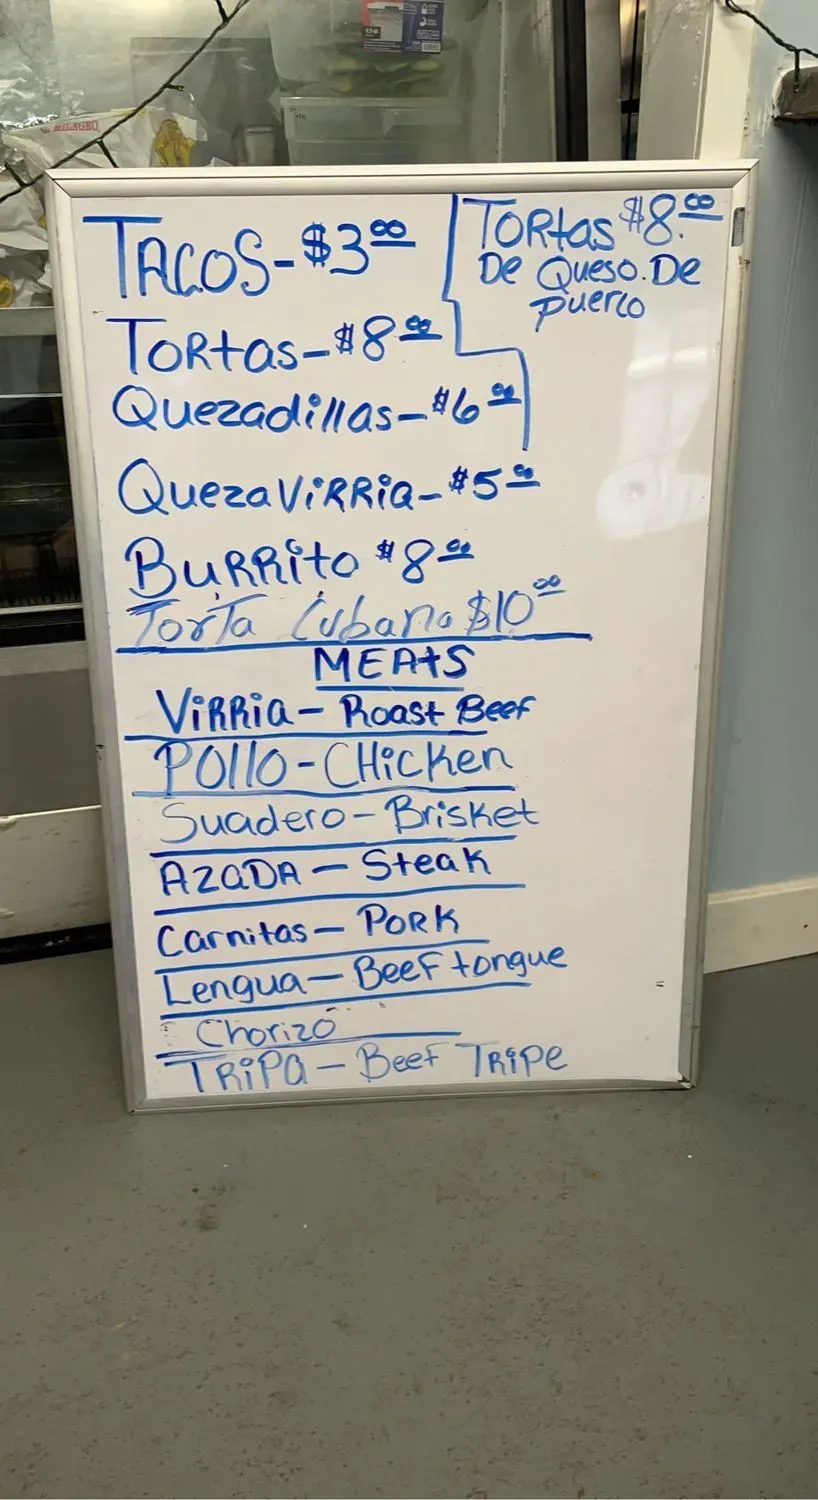 MILAGRO
TACOS-$3.00
TORtas-$8.00
Quezadillas-$6.00
QuezaViRRia-$5.00
BuRRito $8.00
Torta Cubana $10.00
TORtas $8.00
De Queso.De
puerco
MEAtS
ViRRia- Roast Beef
POllO-CHicken
Suadero-Brisket
AZaDA-Steak
Carnitas-PORK
Lengua-Beef tongue
Chorizo
TRiPa-Beef TRiPe